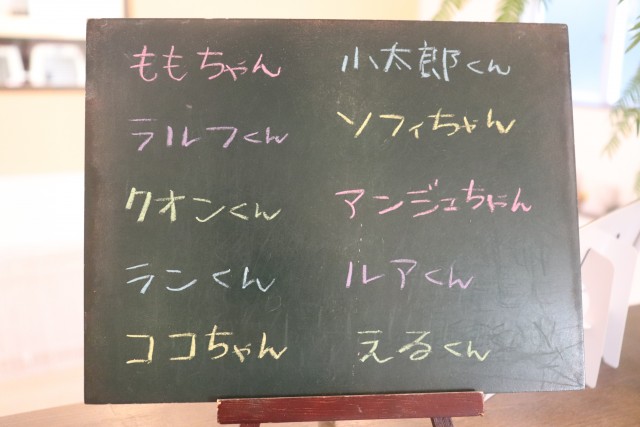 ももちゃん 小太郎くん
ラルフくん ソフィちゃん
クオンくん アンジュちゃん
ランくん ルアくん
ココちゃん えるくん